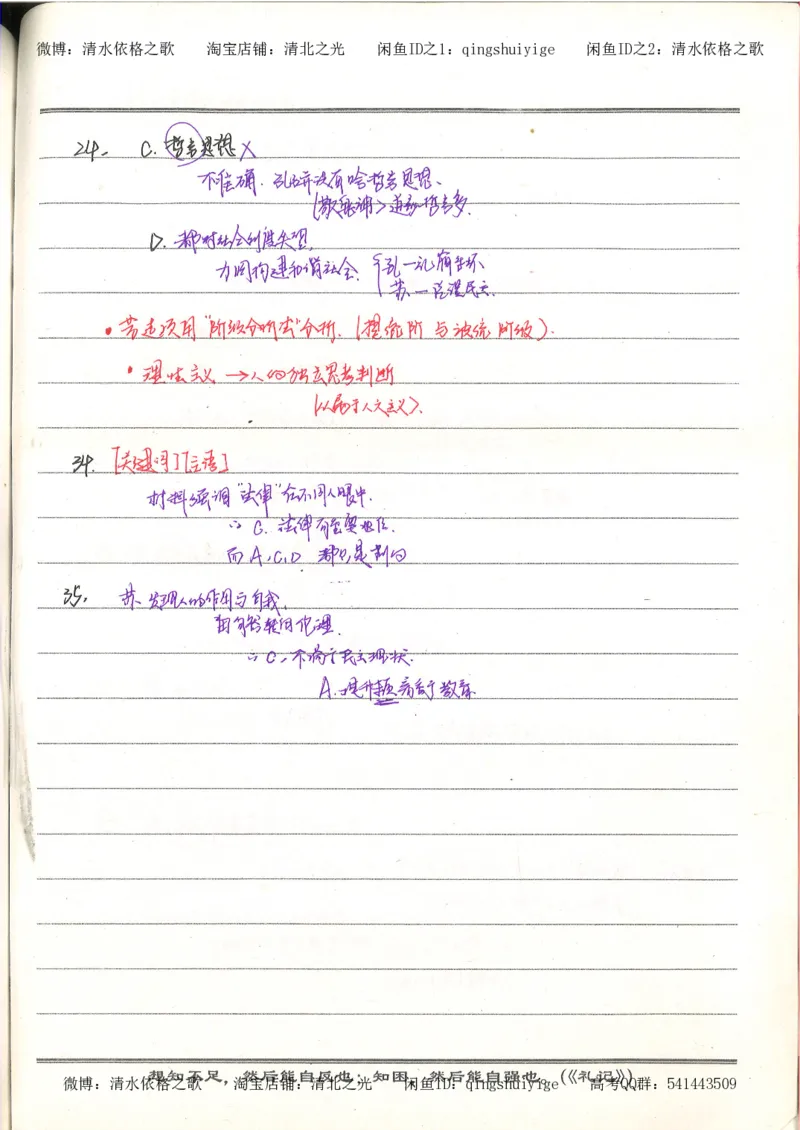 微博：清水依格之歌 淘宝店铺：清北之光 闲鱼ID之1：qingshuiyige 闲鱼ID之2：清水依格之歌
24. C. 哲言思想 X
不准确. 孔丘并没有啥哲言思想.
道家哲言多.
D. 都对社会制度失望,
力图构建和谐社会. 孔一礼崩乐坏
苏一
• 若选项用"阶级分析法"分析. (统阶 与被统 阶级).
• 理性主义 →人的独立思考判断
(从属于人文主义).
34. [关键词][主语]
材料强调"法律"在不同人眼中.
∴ C. 法律有至要地位.
而 A,C,D 都只是割的
35. 苏. 发现人的作用与自我,
伦理.
∴ C. 不满于民主现状.
A. 提升 需靠于教育.
想知不足，然后能自反也；知困，然后能自强也。(《礼记》)
微博：清水依格之歌 淘宝店铺：清北之光 闲鱼ID：qingshuiyige 高考QQ群：541443509